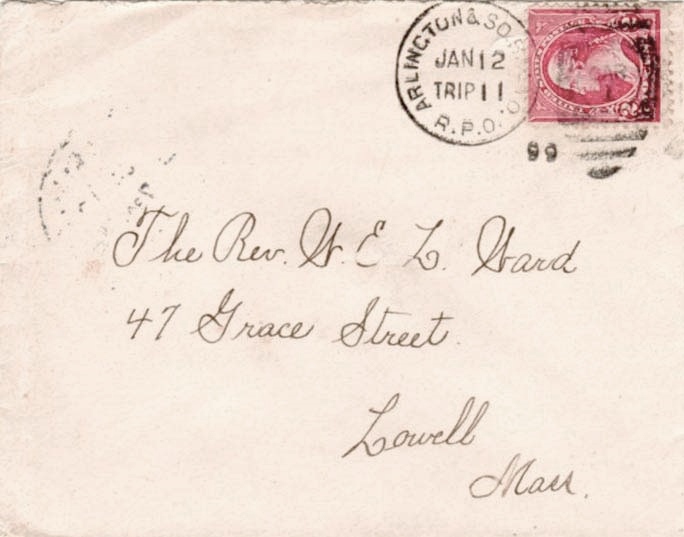 ARLINGTON & SO.
JAN 12
TRIP 11
R.P.O.
99
The Rev. W. E. L. Ward
47 Grace Street.
Lowell
Mass.